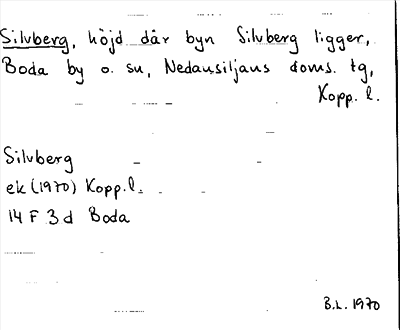 Silvberg, höjd där byn Silvberg ligger,
Boda by o. sn, Nedansiljans doms. tg,
Kopp. l.
Silvberg
ek (1970) Kopp. l.
14 F 3 d Boda
B.L. 1970